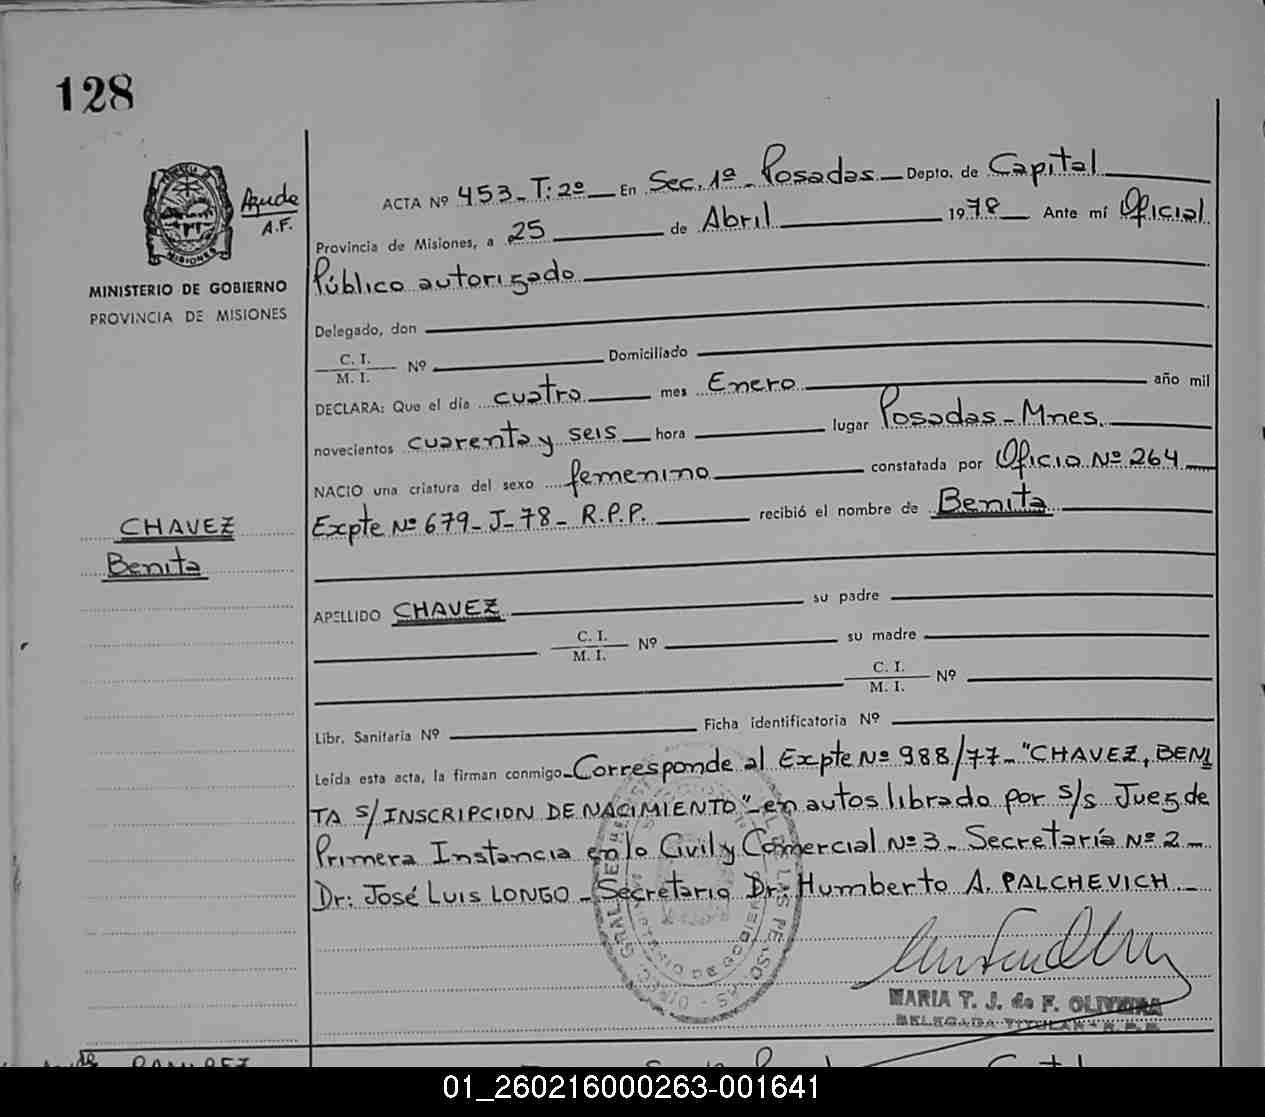 128
Ayude
A.F.
MINISTERIO DE GOBIERNO
PROVINCIA DE MISIONES
CHAVEZ
Benita
ACTA Nº 453_ T: 2º En Sec. 1ª _ Posadas Depto. de Capital
Provincia de Misiones, a 25 de Abril 1978 Ante mí Oficial
Público autorizado
Delegado, don
C. I. / M. I. Nº Domiciliado
DECLARA: Que el día cuatro mes Enero año mil
novecientos cuarenta y seis hora lugar Posadas - Mnes.
NACIO una criatura del sexo femenino constatada por Oficio Nº 264
Expte Nº 679_ J_78_ R.P.P. recibió el nombre de Benita
APELLIDO CHAVEZ su padre
C. I. / M. I. Nº su madre
C. I. / M. I. Nº
Libr. Sanitaria Nº Ficha identificatoria Nº
Leída esta acta, la firman conmigo_ Corresponde al Expte Nº 988/77_ "CHAVEZ, BENI
TA S/INSCRIPCION DE NACIMIENTO" _ en autos librado por S/S Juez de
Primera Instancia en lo Civil y Comercial Nº 3_ Secretaría Nº 2_
Dr: José Luis LONGO _ Secretario Dr: Humberto A. PALCHEVICH_
MARIA T. J. de F. OLIVEIRA
DELEGADA TITULAR - R.P.P.
01_260216000263-001641